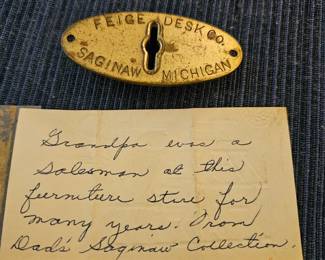 FEIGE DESK CO.
SAGINAW MICHIGAN
Grandpa was a
salesman at this
furniture store for
many years. From
Dad's Saginaw Collection.